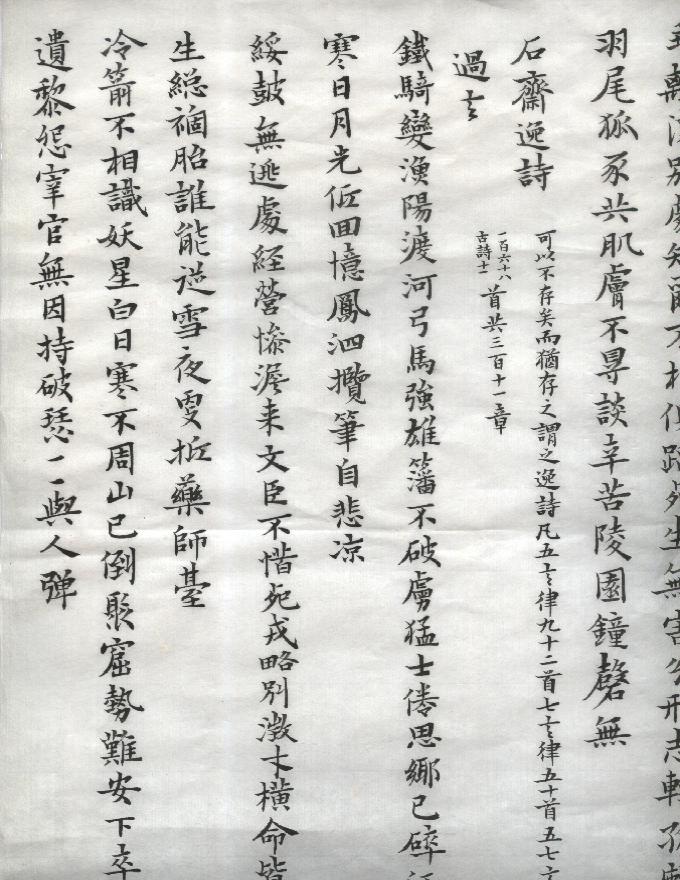 別處知爾不相似路死生無害公刑志輕
羽尾狐豕共肌膚不尋談辛苦陵園鐘磬無
石齋逸詩
可以不存矣而猶存之謂之逸詩凡五言律九十二首七言律五十首五七六
一百六十八
古詩十一
首共三百十一章
過之
鐵騎變漁陽渡河弓馬強雄藩不破虜猛士倦思鄉已碎
寒日月光低回憶鳳泗攬筆自悲涼
綏鼓無逃處経營慘澹来文臣不惜死戎略別激才橫命皆
生緦褔胎誰能逆雪夜更拆藥師臺
冷箭不相識妖星白日寒不周山已倒聚窟勢難安下卒
遺黎怨宰官無因持破瑟一一與人彈